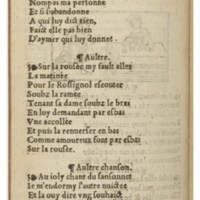 Nompas ma personne
Et si labandonne
A qui luy dict rien,
Faict elle pas bien
D'aymer qui luy donnet.
¶ Aultre.
Sur la rousée my fault aller
La matinée
Pour le Rossignol escouter
Soubz la ramée
Tenant sa dame soubz le bras
En luy demandant par esbas
Vne accollée
Et puis la renuerser en bas
Comme amoureux font par esbas
Sur la rousée.
¶ Aultre chanson.
Au ioly chant du sansonnet
Ie m'endormy l'autre nuictee
Et la ouy dire vng souhait